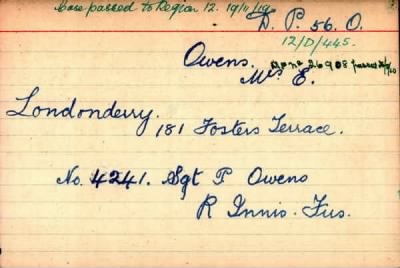 Case passed to Region 12. 19/11/19
D. P. 56. O.
12/D/445.
Owens. 26908 passed
Mrs E.
Londonderry.
181 Fosters Terrace.
No. 4241. Sgt P Owens
R Innis. Fus.